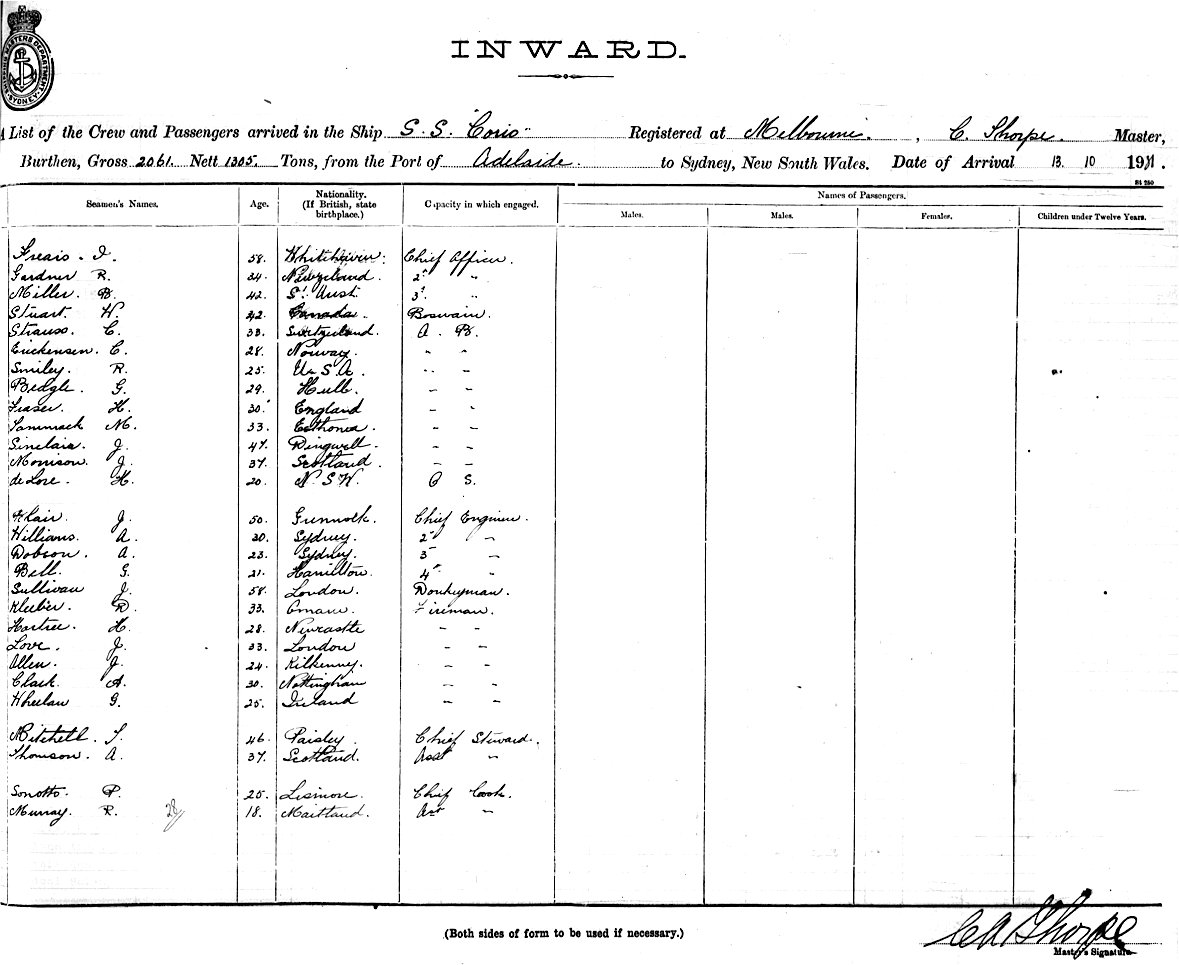 SHIPPING MASTERS DEPARTMENT SYDNEY
INWARD.
A List of the Crew and Passengers arrived in the Ship S.S. "Corio" Registered at Melbourne, C. Thorpe. Master,
Burthen, Gross 2061. Nett 1305. Tons, from the Port of Adelaide. to Sydney, New South Wales. Date of Arrival 13 10 1911.
St 250
Seamen's Names. Age. Nationality. (If British, state birthplace.) Capacity in which engaged. Names of Passengers.
Males. Males. Females. Children under Twelve Years.
I. 58. Whitehaven. Chief Officer.
Gardner R. 34. N Zealand. 2nd "
Miller. B. 42. Sth Aust. 3rd "
Stuart. W. 42. Canada. Boswain.
Strauss. C. 33. Switzerland. A. B.
Erickensen. C. 28. Norway. " "
Smiley. R. 25. U S A. " "
Bedgle. G. 29. Hull. " "
Fraser. H. 30. England " "
Tammack M. 33. Esthonia. " "
Sinclair. J. 47. Dingwell. " "
Morrison. J. 37. Scotland. " "
de Lore. H. 20. N.S.W. O S.
J. 50. Chief Engineer.
Williams. A. 30. Sydney. 2nd "
Dobson. A. 23. Sydney. 3 "
Bell. G. 21. Hamilton. 4th "
Sullivan J. 58. London. Donkeyman.
Kleiber. R. 33. Fireman.
Hartree. H. 28. Newcastle " "
Love. J. 33. London " "
Allen. J. 24. Kilkenny. " "
Clark A. 30. Nottingham " "
Wheelan G. 25. Ireland " "
Mitchell. S. 46. Paisley. Chief Steward.
Thomson. A. 37. Scotland. Asst "
Sonotto. P. 25. Lismore. Chief Cook.
Murray. R. 28 18. Maitland. Asst "
(Both sides of form to be used if necessary.)
C A Thorpe
Master's Signature.